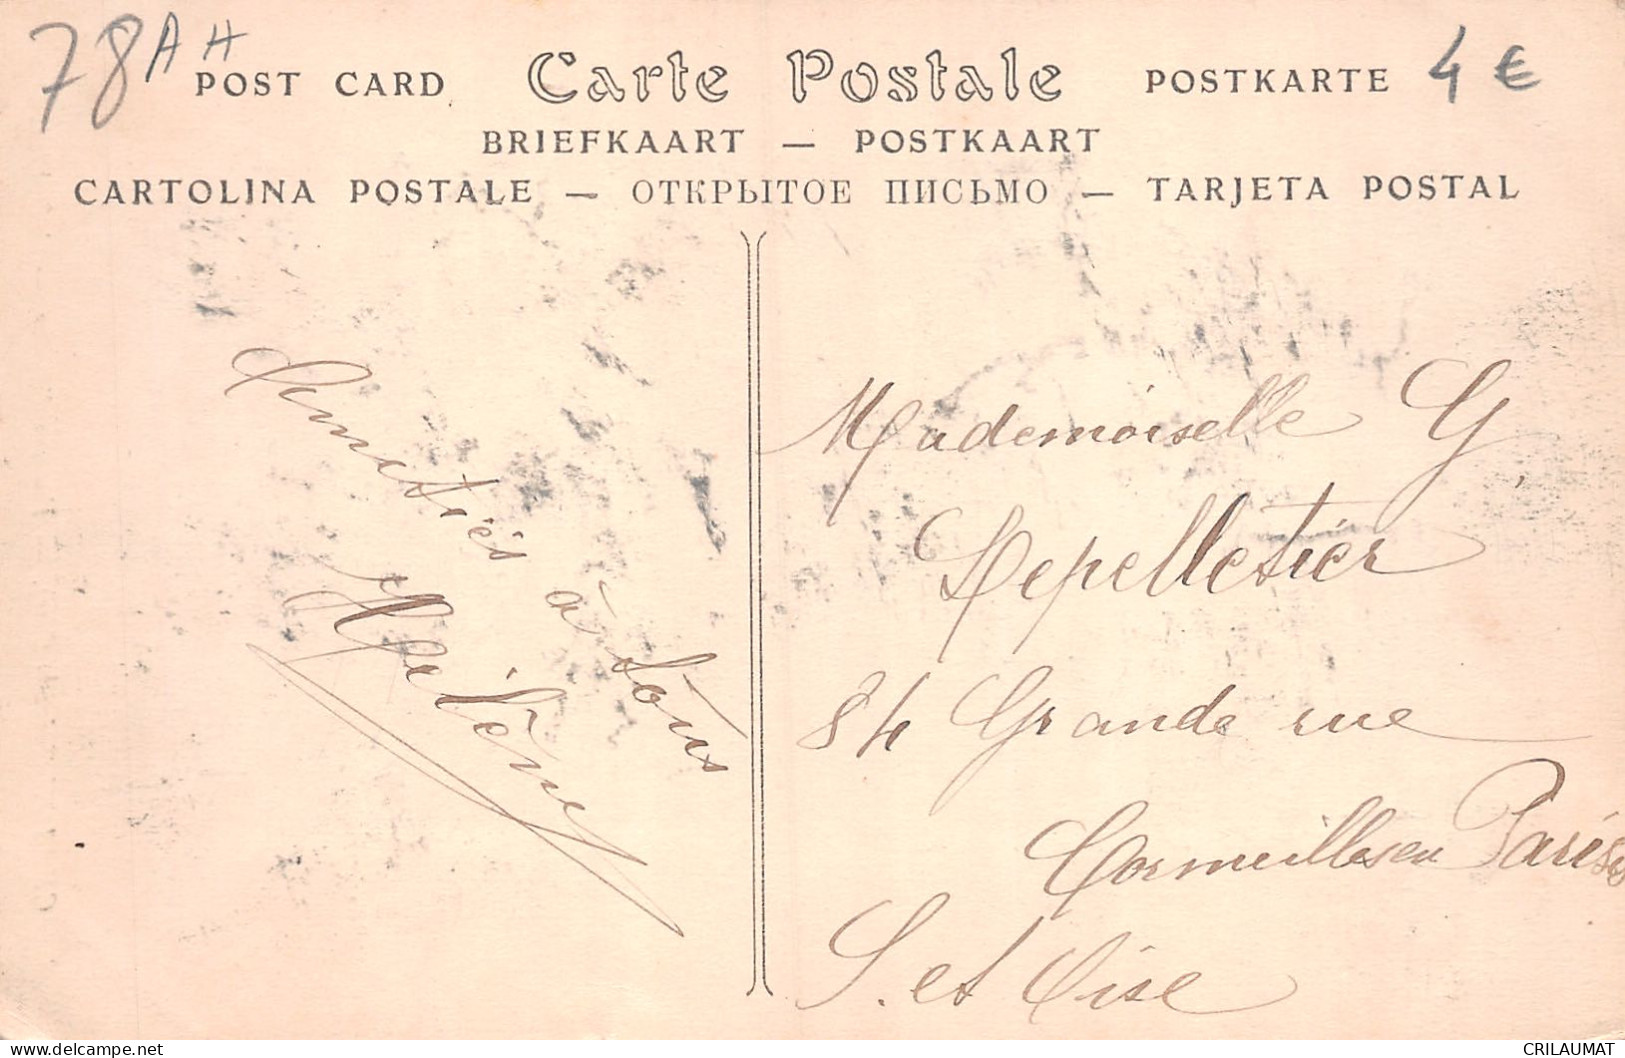 78 AH
4 €
POST CARD Carte Postale POSTKARTE
BRIEFKAART — POSTKAART
CARTOLINA POSTALE — ОТКРЫТОЕ ПИСЬМО — TARJETA POSTAL
Amitiés à tous
Mademoiselle G.
Lepelletier
84 Grande rue
Cormeilles en Parisis
S. et Oise
CRILAUMAT